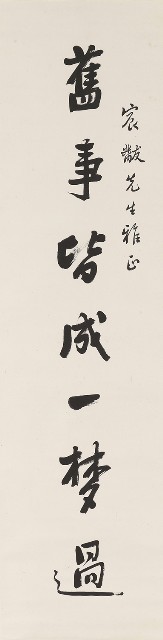 宸黻先生雅正
舊事皆成一梦過